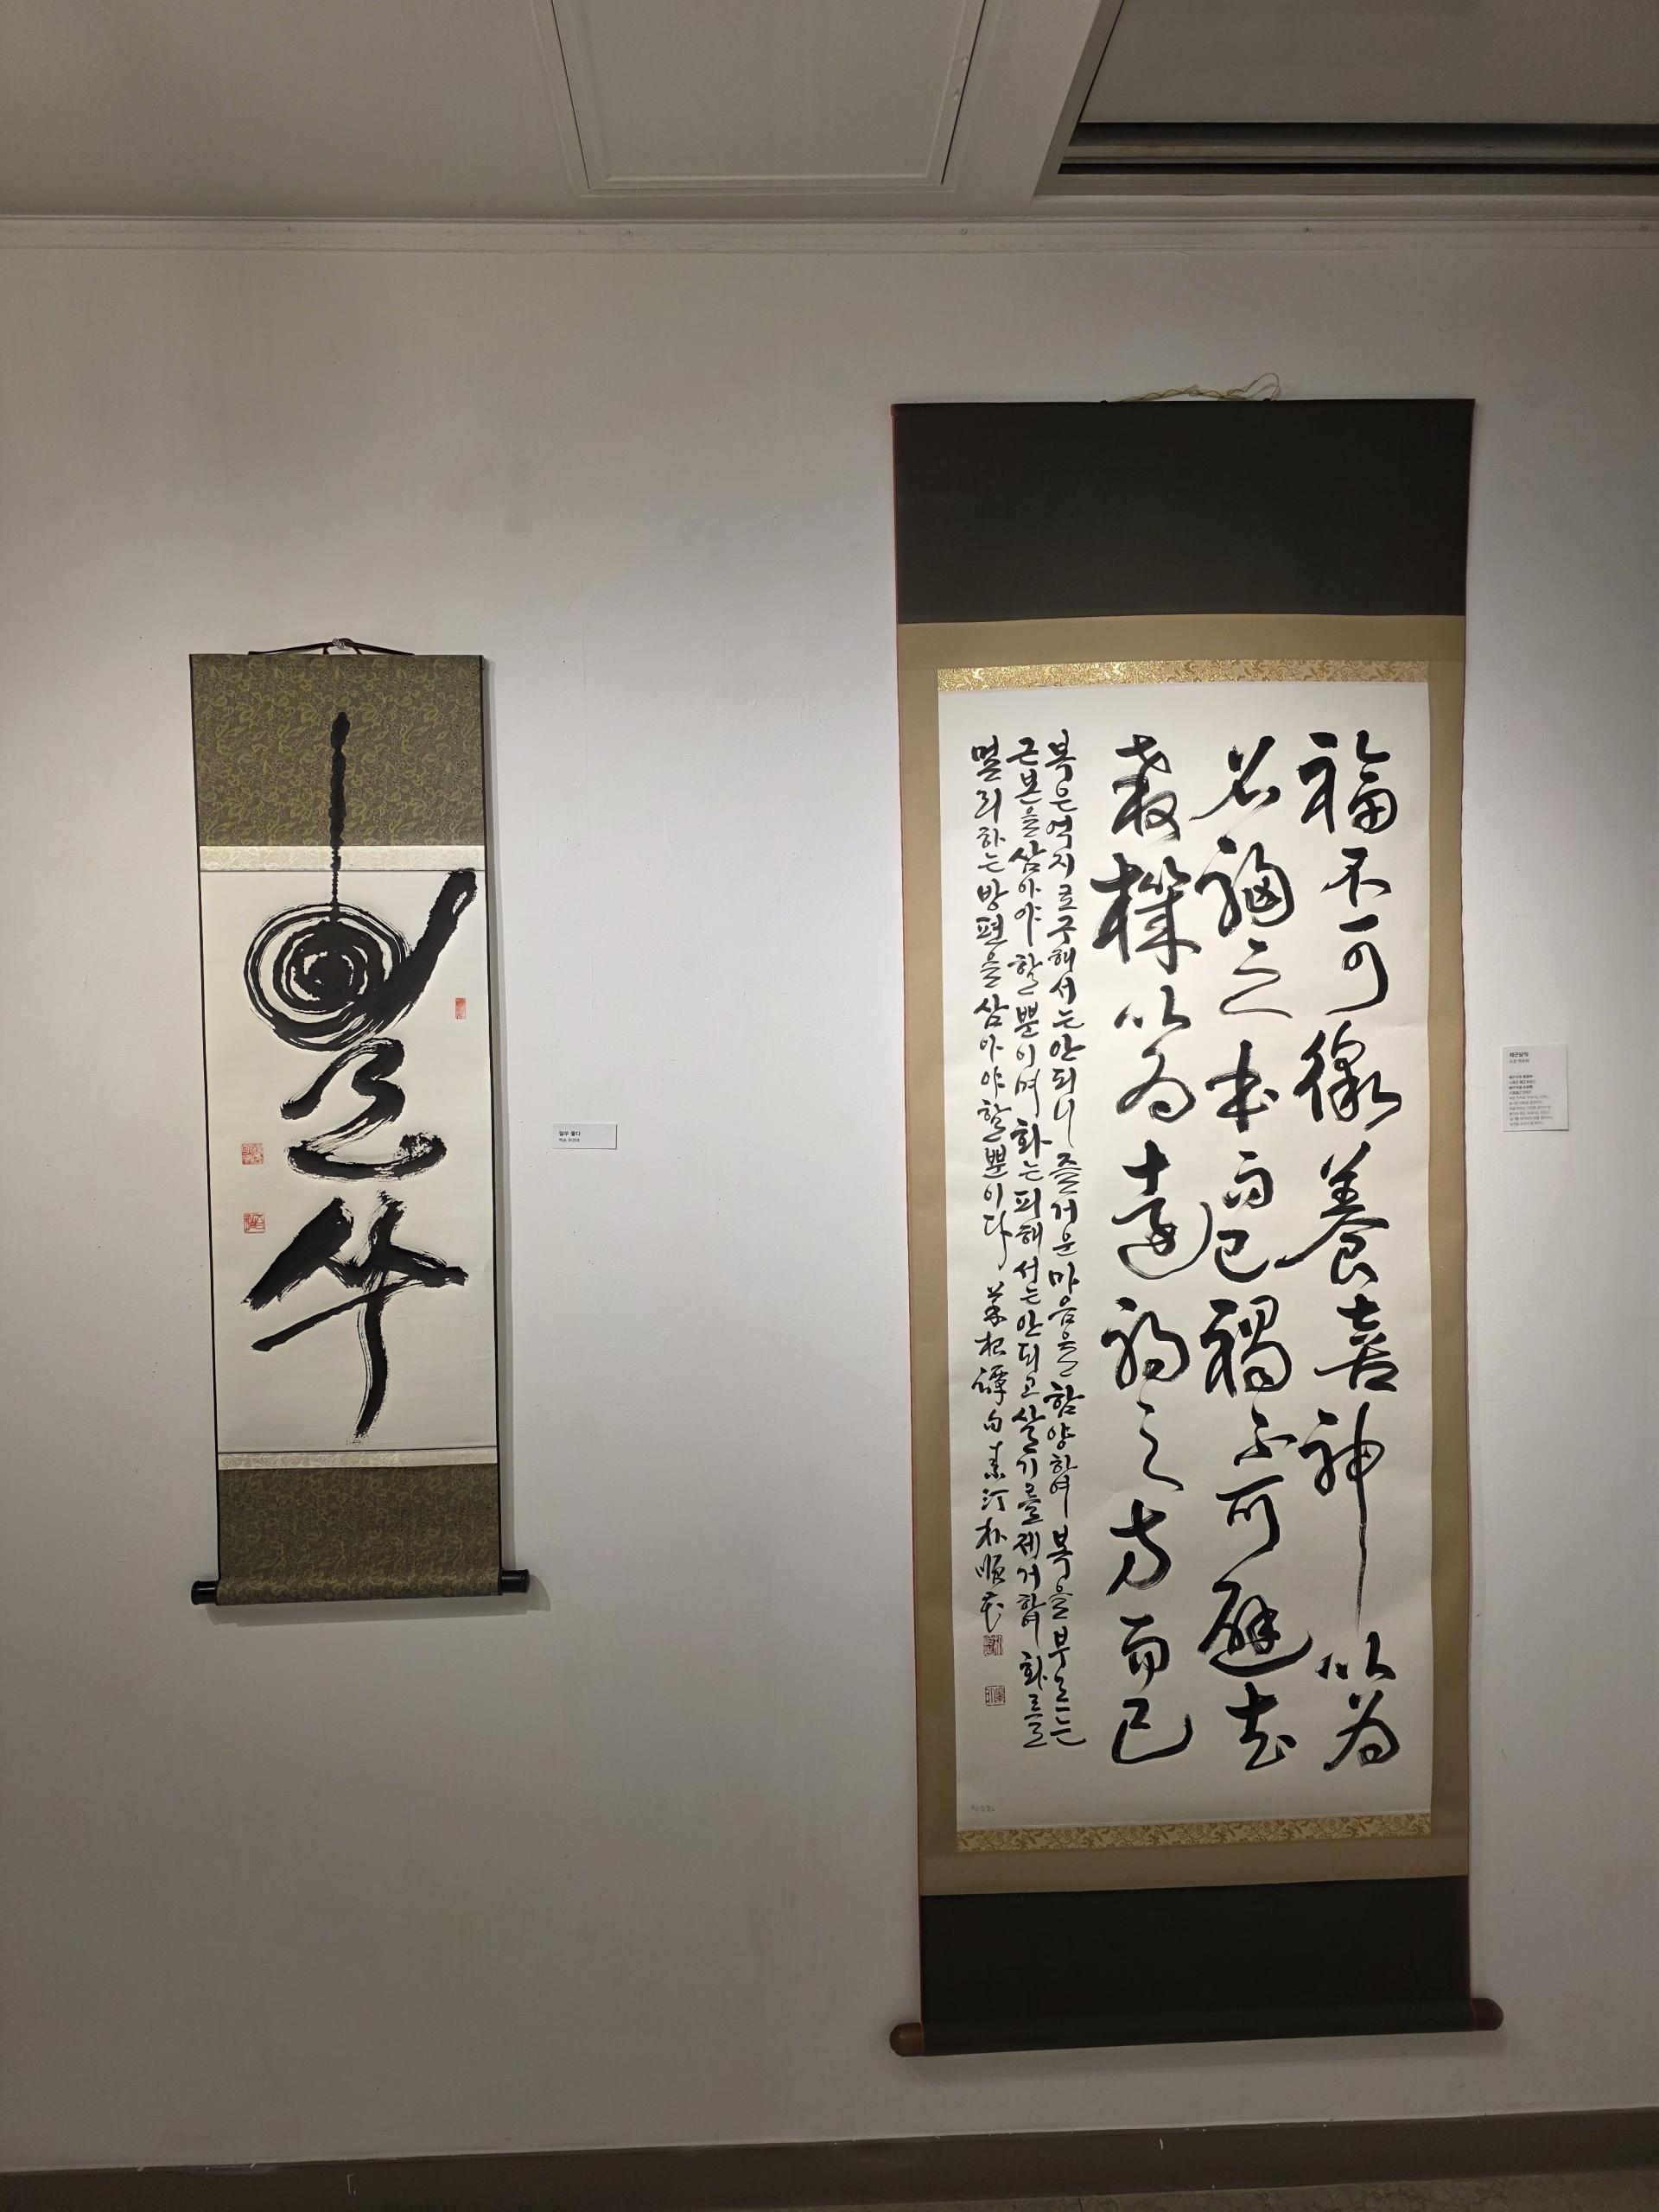 얼쑤
福不可徼養喜神以為
召福之本而已禍不可避去
殺機以為遠禍之方而已
복은억지로구해서는안되니즐거운마음을함양하여복을부르는
근본을삼아야할뿐이며화는피해서는안되고살기를제거하여화를
멀리하는방편을삼아야할뿐이다 菜根譚句素汀朴順花